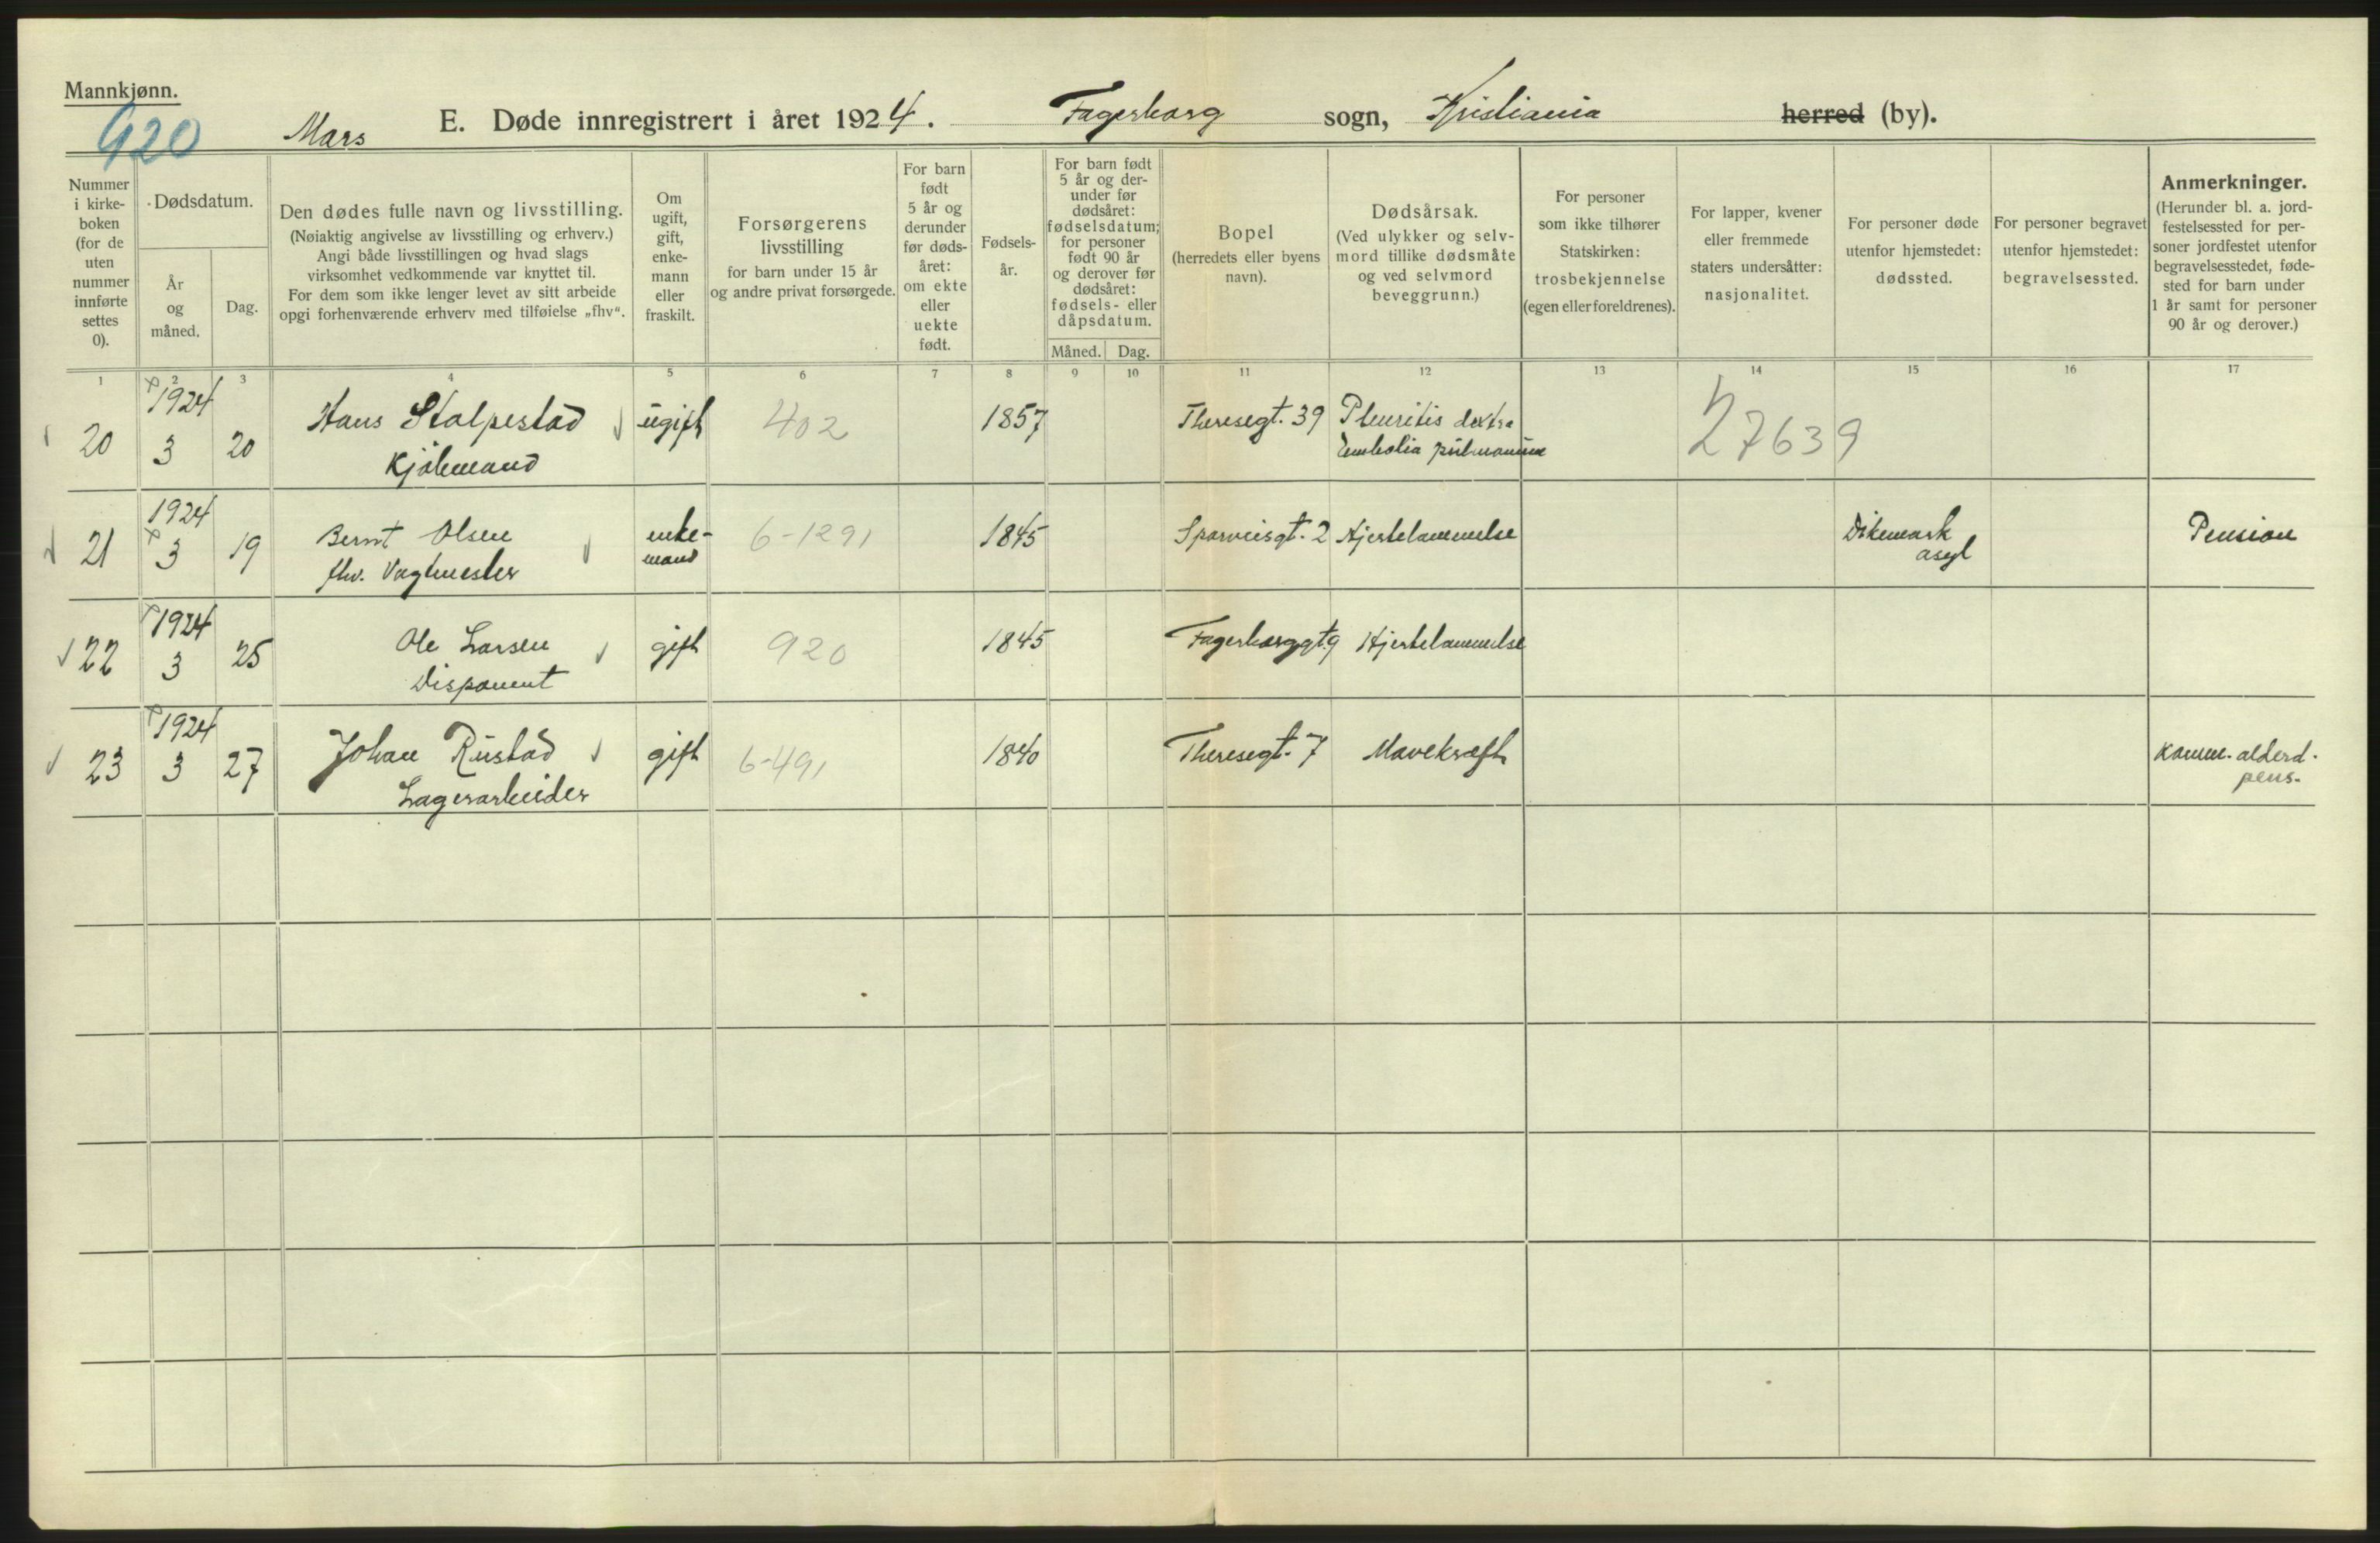 Mannkjønn.
920
Mars
E. Døde innregistrert i året 1924. Fagerborg sogn, Kristiania herred (by).
Nummer i kirke-boken (for de uten nummer innførte settes 0).
Dødsdatum.
År og måned.
Dag.
Den dødes fulle navn og livsstilling.
(Nøiaktig angivelse av livsstilling og erhverv.)
Angi både livsstillingen og hvad slags
virksomhet vedkommende var knyttet til.
For dem som ikke lenger levet av sitt arbeide
opgi forhenværende erhverv med tilføielse „fhv“.
Om ugift, gift, enke-mann eller fraskilt.
Forsørgerens
livsstilling
for barn under 15 år
og andre privat forsørgede.
For barn født 5 år og derunder før døds-året: om ekte eller uekte født.
Fødsels-år.
For barn født 5 år og der-under før dødsåret: fødselsdatum; for personer født 90 år og derover før dødsåret: fødsels- eller dåpsdatum.
Måned. Dag.
Bopel
(herredets eller byens navn).
Dødsårsak.
(Ved ulykker og selv-mord tillike dødsmåte og ved selvmord beveggrunn.)
For personer som ikke tilhører Statskirken: trosbekjennelse (egen eller foreldrenes).
For lapper, kvener eller fremmede staters undersåtter: nasjonalitet.
For personer døde utenfor hjemstedet: dødssted.
For personer begravet utenfor hjemstedet: begravelsessted.
Anmerkninger.
(Herunder bl. a. jord-festelsessted for per-soner jordfestet utenfor begravelsesstedet, føde-sted for barn under 1 år samt for personer 90 år og derover.)
1 2 3 4 5 6 7 8 9 10 11 12 13 14 15 16 17
20 1924 3 20 Hans Stalpestad ugift 402 1857 Theresegt. 39 Pleuritis dextra 27639
Kjølmand Embolia pulmonum
21 1924 3 19 Bernt Olsen enke- 6-1291 1845 Sporveisgt. 2 Hjertelammelse Dikemark Pension
fhv. Vagtmester mand asyl
22 1924 3 25 Ole Larsen gift 920 1845 Fagerborggt 9 Hjertelammelse
Disponent
23 1924 3 27 Johan Rustad gift 6-491 1840 Theresegt. 7 Mavekræft Komm. alderd.
Lagerarbeider pens.